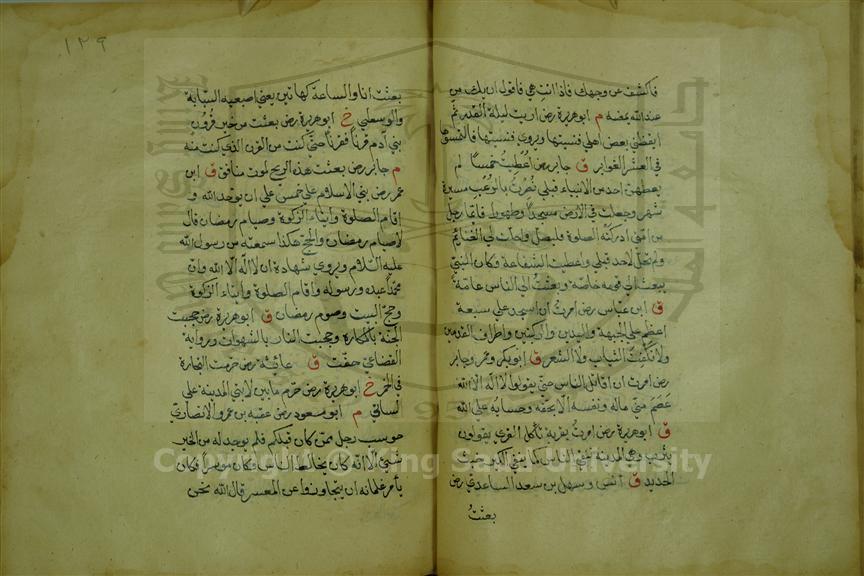 فاكشف عن وجهك فاذا انت هي فاقول ان يك من
عند الله يمضه م ابو هريرة رض اريت ليلة القدر ثم
ايقظني بعض اهلي فنسيتها ويروي فنسيتها فالتمسوها
في العشر الغوابر ق جابر رض اعطيت خمسا لم
يعطهن احد من الانبياء قبلي نصرت بالرعب مسيرة
شهر وجعلت لي الارض مسجدا وطهورا فايما رجل
من امتي ادركته الصلوة فليصل واحلت لي الغنائم
ولم تحل لاحد قبلي واعطيت الشفاعة وكان النبي
يبعث الي قومه خاصة وبعثت الي الناس عامة
ق ابن عباس رض امرت ان اسجد علي سبعة
اعظم علي الجبهة واليدين والركبتين واطراف القدمين
ولا نكفت الثياب ولا الشعر ق ابو بكر وعمر وجابر
رض امرت ان اقاتل الناس حتي يقولوا لا اله الا الله
عصم مني ماله ونفسه الا بحقه وحسابه علي الله
ق ابو هريرة رض امرت بقرية تأكل القري يقولون
يثرب وهي المدينة تنفي الناس كما ينفي الكير خبث
الحديد ق انس وسهل بن سعد الساعدي رض
بعثت
١٢٩
بعثت انا والساعة كهاتين يعني اصبعيه السبابة
والوسطي خ ابو هريرة رض بعثت من خير قرون
بني آدم قرنا فقرنا حتي كنت من القرن الذي كنت منه
م جابر رض بعثت هذه الريح لموت منافق ق ابن
عمر رض بني الاسلام علي خمس علي ان يوحد الله و
اقام الصلوة وايتاء الزكوة وصيام رمضان قال
لا صيام رمضان والحج هكذا سمعته من رسول الله
عليه السلام ويروي شهادة ان لا اله الا الله وان
محمدا عبده ورسوله واقام الصلوة وايتاء الزكوة
وحج البيت وصوم رمضان ق ابو هريرة رض حجبت
الجنة بالمكاره وحجبت النار بالشهوات ورواية
القضاعي حفت ق عائشة رض حرمت التجارة
في الخمر خ ابو هريرة رض حرم ما بين لابتي المدينة علي
لساني م ابو مسعود رض عقبة بن عمرو الانصاري
حوسب رجل ممن كان قبلكم فلم يوجد له من الخير
شيئ الا انه كان يخالط الناس وكان موسرا فكان
يأمر غلمانه ان يتجاوزوا عن المعسر قال الله نحن
Copyright © King Saud University